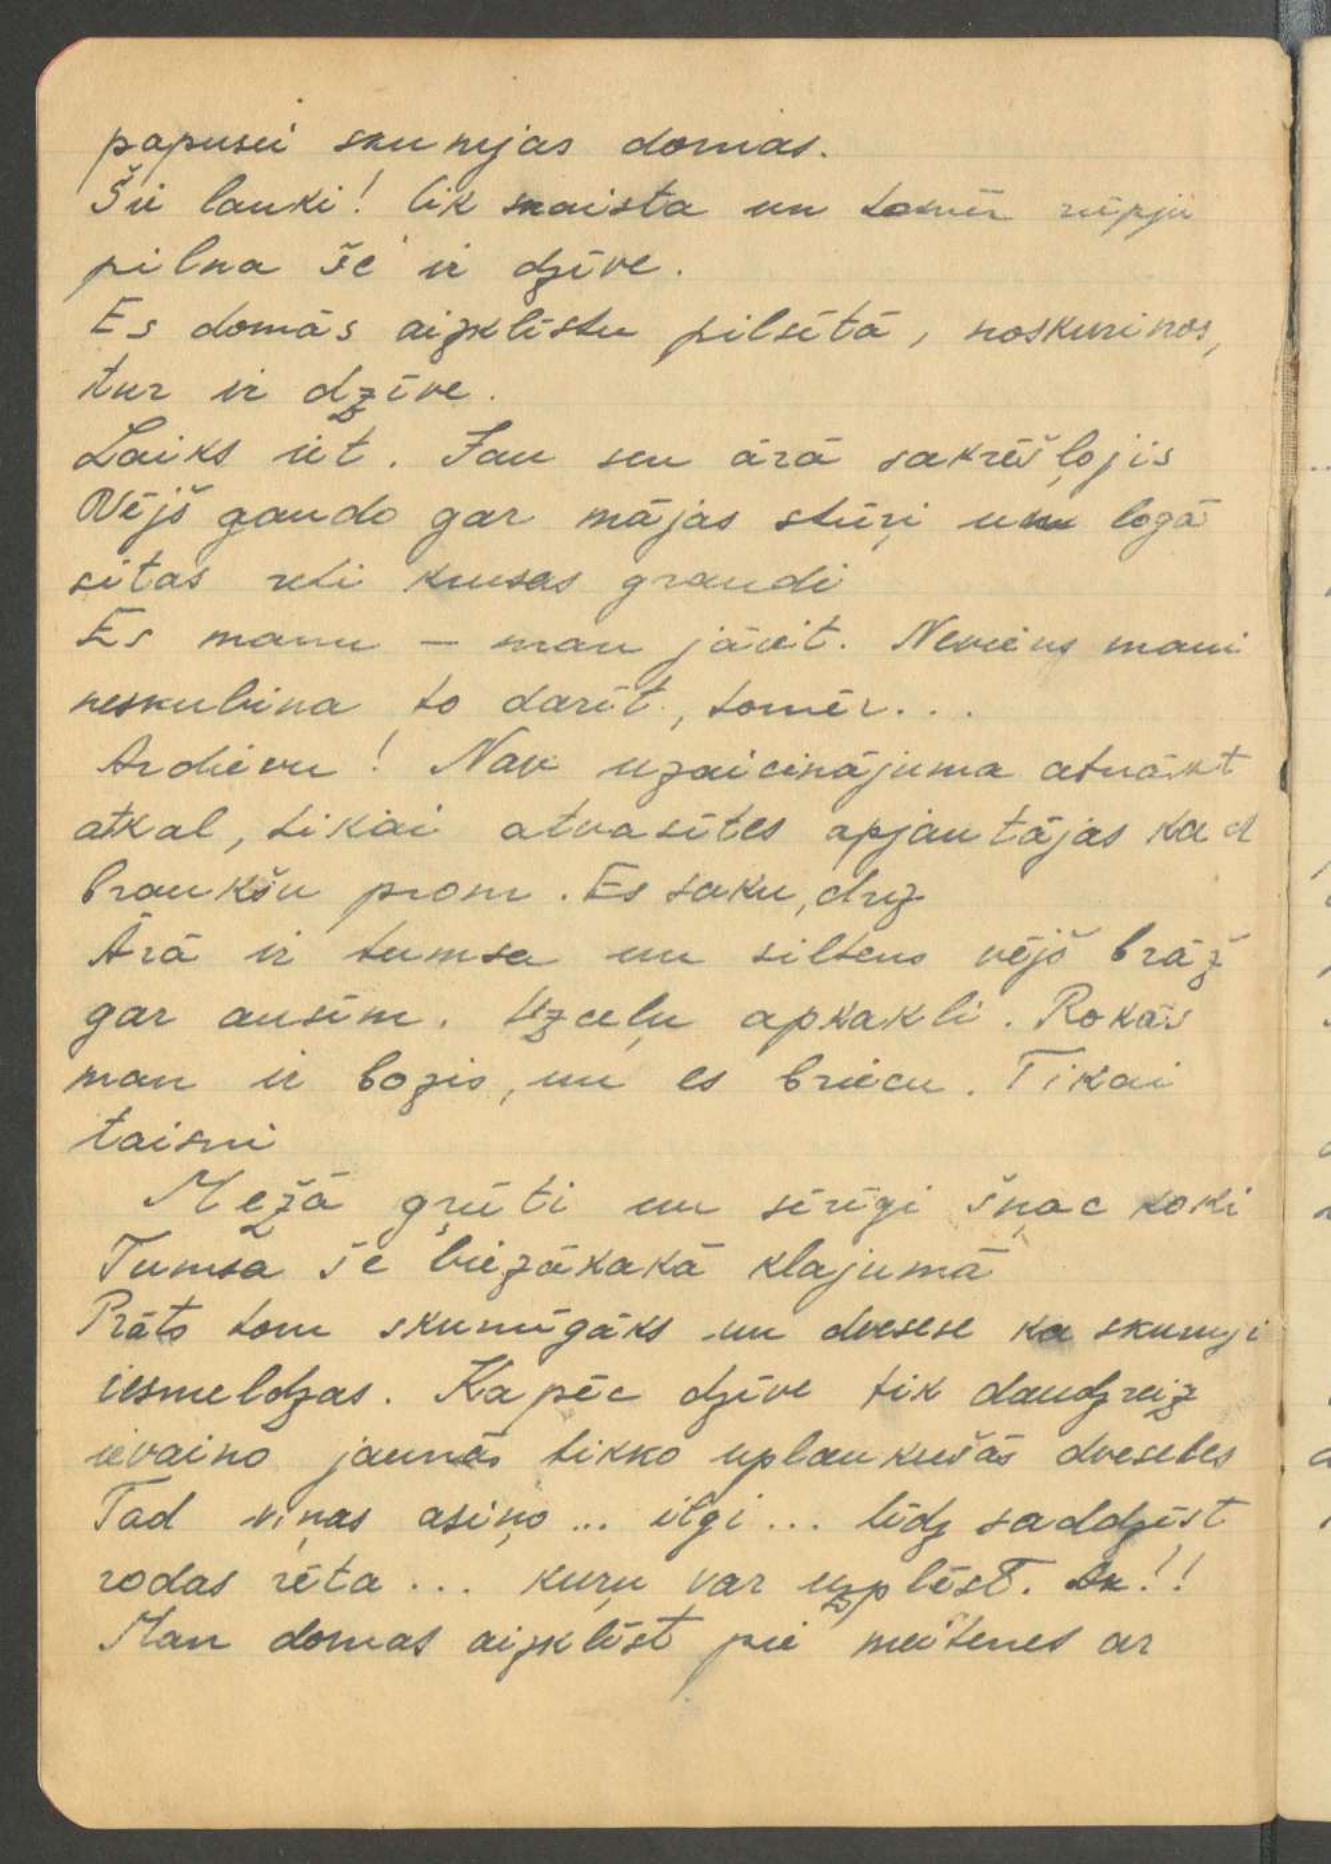 papusei skumjas domas.
Šie lauki! tik skaista un tomēr rūpju
pilna šē ir dzīve.
Es domās aizklīstu pilsētā, noskurinos,
tur ir dzīve.
Laiks iet. Jau sen ārā sakrēšļojis
Vējš gaudo gar mājas stūŗi un logā
sitas reti krusas graudi
Es manu – man jāiet. Neviens mani
neskubina to darīt, tomēr...
Ardievu! Nav uzaicinājuma atnākt
atkal, tikai atvasītes apjautājas kad
braukšu prom. Es saku, drīz
Ārā ir tumsa un siltens vējš brāž
gar ausīm. Uzceļu apkakli. Rokās
man ir bozis, un es briecu. Tikai
taisni
Mežā grūti un sērīgi šņāc koki
Tumsa še biezāka kā klajumā
Prāts tom skumīgāks un dvesele ka skumji
iesmeldzas. Kapēc dzīve tik daudzreiz
ievaino jaunās tikko uplaukušās dveseles
Tad viņas asiņo... ilgi... līdz saddzīst
rodas rēta... kuŗu var uzplēst. Ak!!
Man domas aizklīst pie meitenes ar